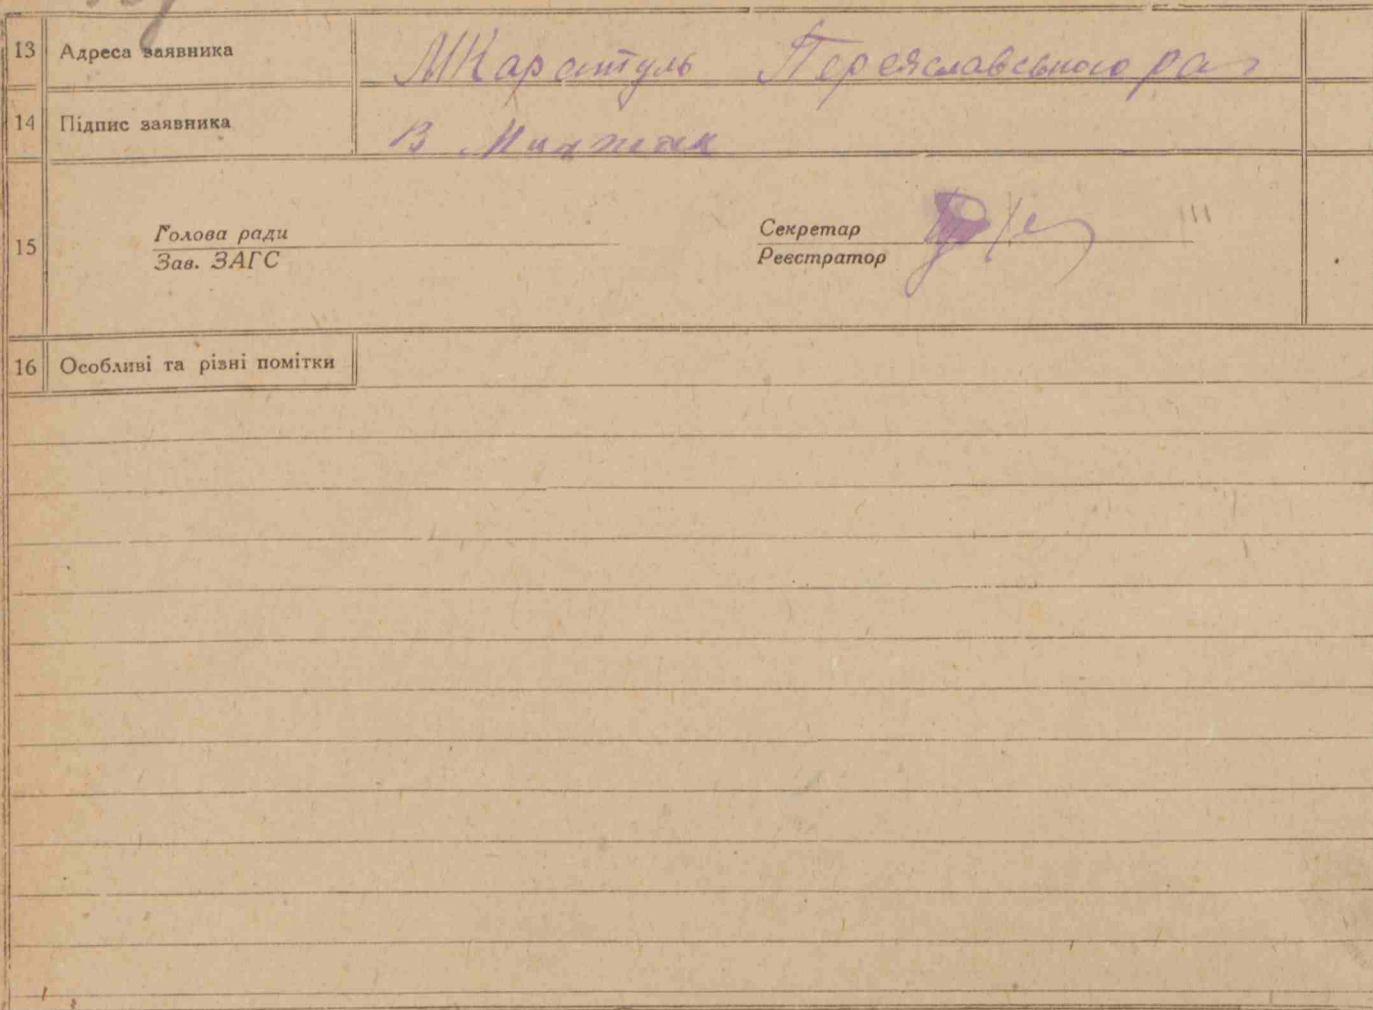 13 Адреса заявника МКаратуль Переяславського ра
14 Підпис заявника В
15
Голова ради
Зав. ЗАГС
Секретар
Реєстратор
16 Особливі та різні помітки